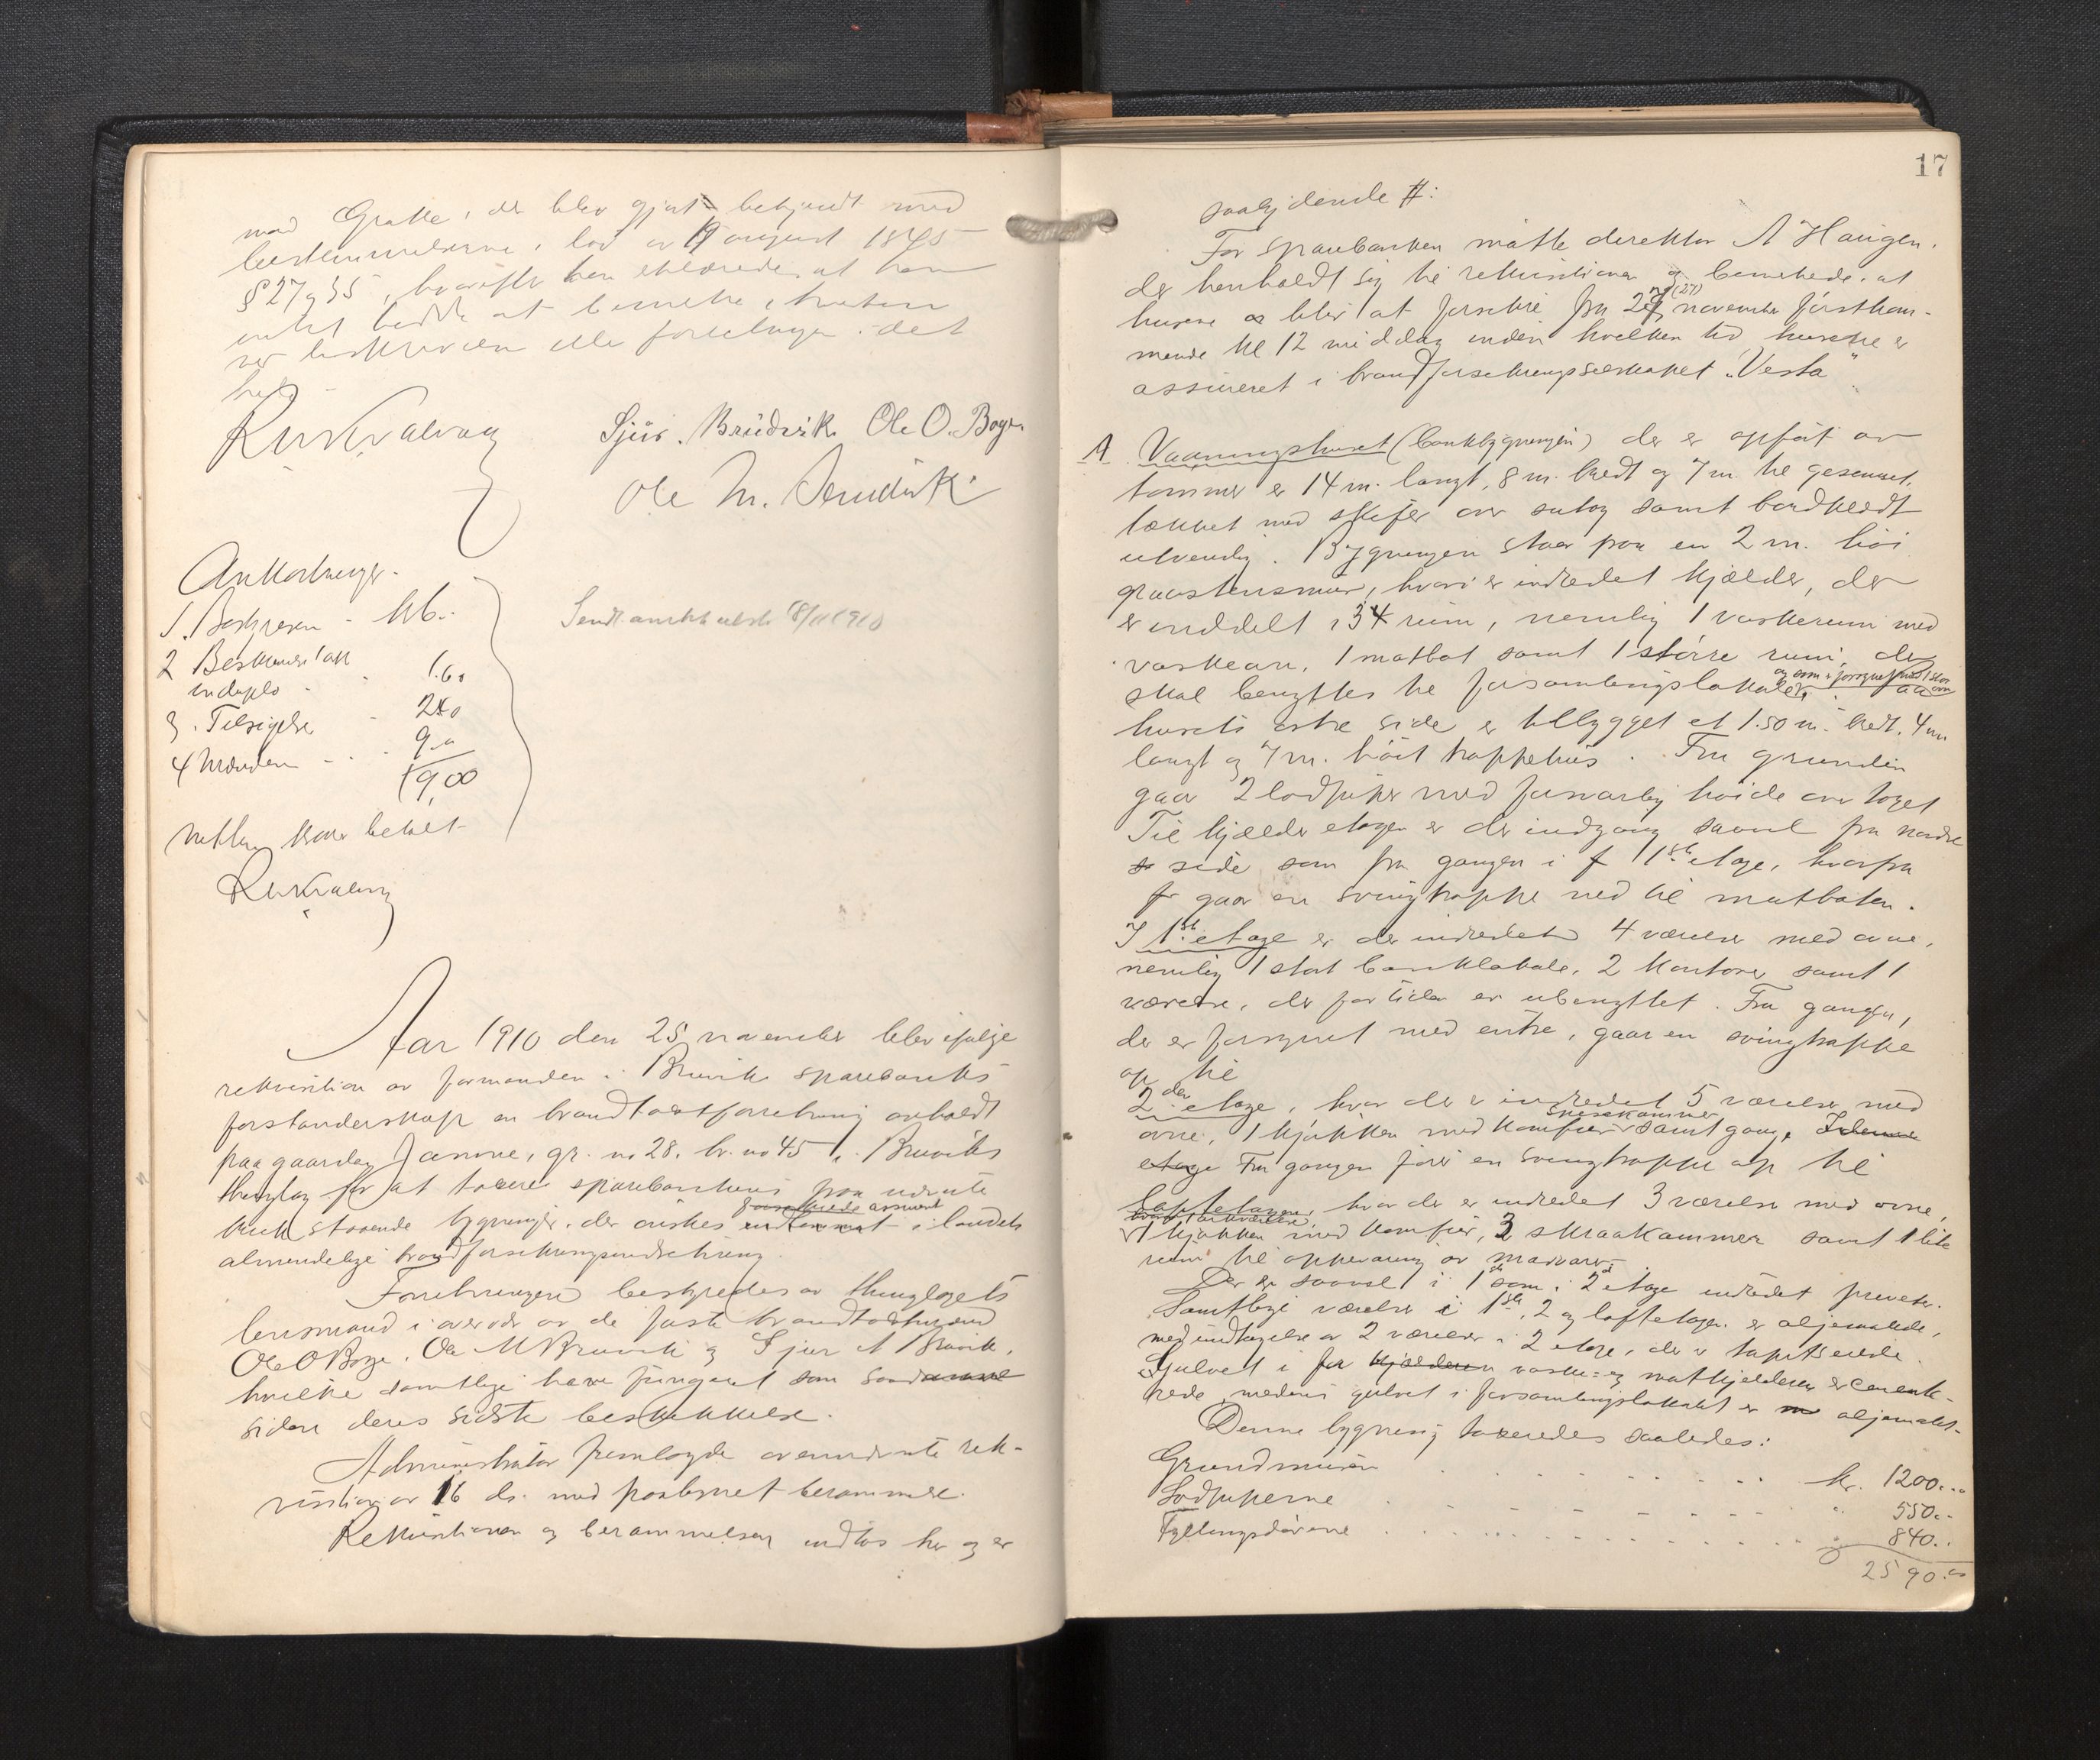 med Grakke, der blev gjort bekjendt med
bestemmelserne i lov av 19 august 1845
§ 27 og 35, hvorefter han erklærede, at han
intet hadde at bemerke
ver beskrivelsen eller forretningen i det
hele.
Sjur. Bruvik. Ole O. Boge
Ole M. Bruvik
Omkostninger.
1. Bestyreren - kr 6.-
2 Beskrivelse
1.60
3. Tilsigelse - 2.40
4 Mændene - - - 9.00
19,00
Sendt amtets utskr 18/11 1910
Aar 1910 den 25 november blev ifølge
rekvisition av formanden i Bruvik sparebanks
forstanderskap en brandtaxtforretning avholdt
paa gaarden Janne, gr. no 28, br. no 45 i Bruviks
thinglag for at taxere sparebankens paa nævnte
bruk staaende bygninger, der ønskes
assureret
i landets
almindelige brandforsikringsindretning.
Forretningen bestyredes av thinglagets
lensmand i overvær av de faste brandtaxtmænd
Ole O Boge, Ole M Bruvik og Sjur A Bruvik,
hvilke samtlige have fungeret som saadanne
siden deres sidste beskikkelse.
Administrator fremlagde ovennævnte rek-
visition av 16 ds. med paategnet berammelse.
Rekvisitionen og berammelsen indtas her og er
17
saalydende #:
For sparebanken møtte direktør A Haugen,
der henholdt sig til rekvisitionen og bemerkede, at
husene blir at forsikre fra 27 (27) november førstkom-
mende kl 12 middag inden hvilken tid husene er
assureret i brandforsikringsselskapet "Vesta".
A Vaaningshuset (bankbygningen) der er opført av
tømmer er 14 m. langt, 8 m. bredt og 7 m. til gesemset,
tækket med skifer over sutag samt bordklædt
utvendig. Bygningen staar paa en 2 m. høi
graastensmur, hvori er indredet kjælder, der
er inddelt i 3 rum, nemlig 1 vaskerum med
vaskeovn, 1 matbod samt 1 større rum, der
skal benyttes til forsamlingslokale
og som er forsynet med 1 stor ovn
husets østre side er tilbygget et 1.50 m. bredt, 4 m
langt og 7 m. høit trappehus. Fra grunden
gaar 2 lodpiper med forsvarlig høide over taget
Til kjælderetagen er der indgang saavel fra nordre
side som fra gangen i 1ste etage, hvorfra
gaar en svingtrappe ned til matboden.
I 1ste etage er der indredet 4 værelser med ovne,
nemlig 1 stort banklokale, 2 kontorer samt 1
værelse, der for tiden er ubenyttet. Fra gangen,
der er forsynet med entre, gaar en svingtrappe
op til
2den etage, hvor der er indredet 5 værelser med
spisekammer
ovne, 1 kjøkken med komfur samt gang. I denne
etage Fra gangen fører en svingtrappe op til
loftetagen, hvor der er indredet 3 værelser med ovne,
1 kjøkken med komfur, 3 skraakammer samt 1 lite
rum til opbevaring av matvarer.
Der er saavel i 1ste som i 2d etage indredet priveter.
Samtlige værelser i 1ste, 2 og loftetagen er oljemalede,
med undtagelse av 2 værelser i 2 etage, der er tapetserede.
Gulvet i kjælderen vaske- og matkjælderen er cemente-
rede, medens gulvet i forsamlingslokalet er oljemalt.
Denne bygning taxeredes saaledes:
Grundmuren . . . . . . . . kr. 1200..
Lodpiperne . . . . . . . . " 550..
Fyllingsdørene . . . . . . . . " 840..
2590.00